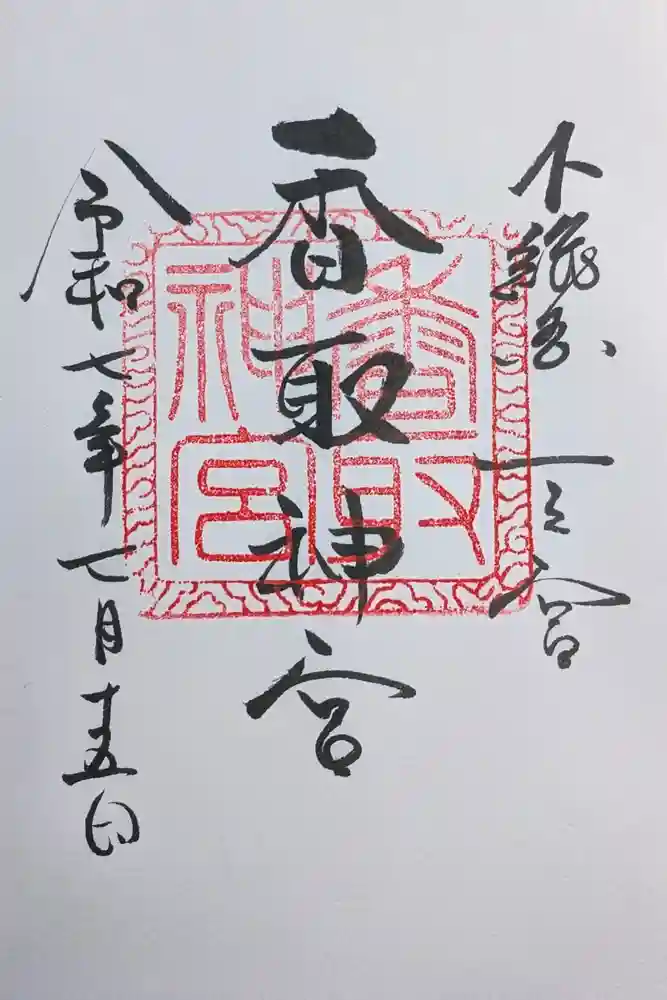 下総國一之宮
香取神宮
香取神宮
令和七年七月十五日